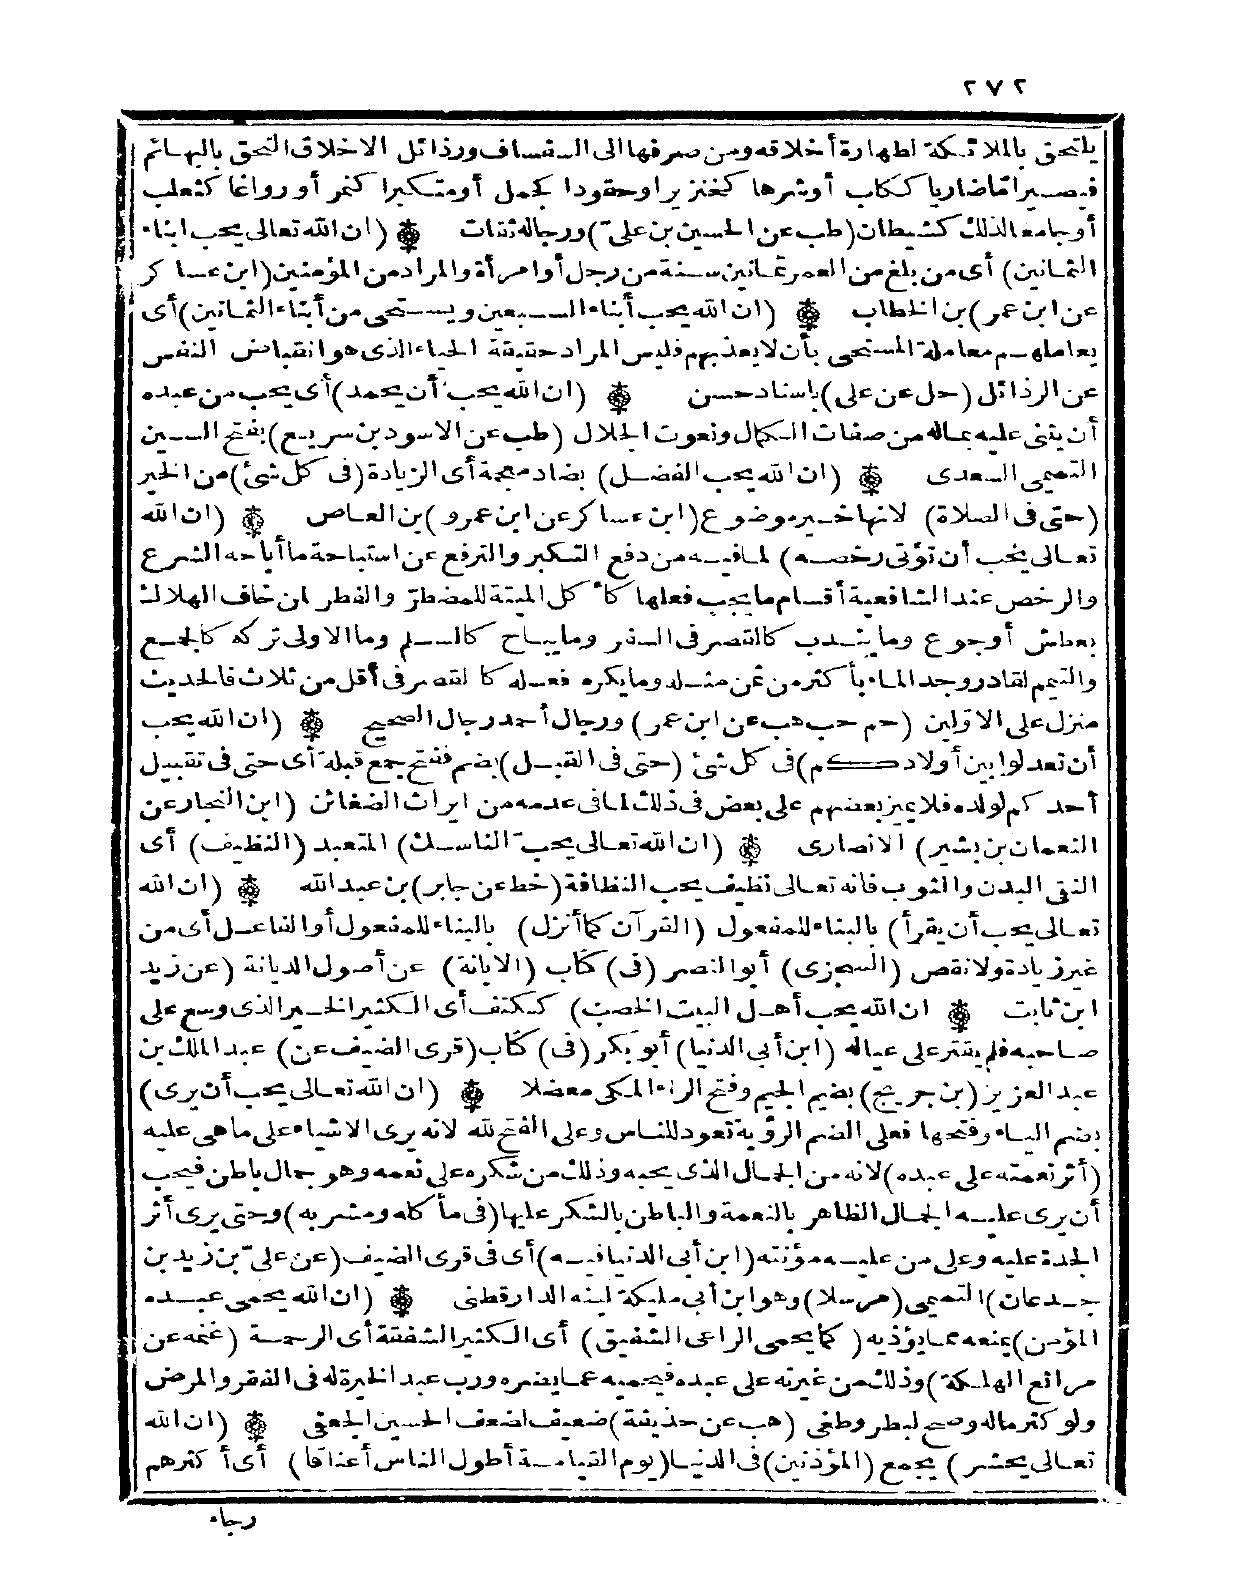 ٢٧٢
يلتحق بالملائكة لطهارة أخلاقه ومن صرفها الى السفساف ورذائل الاخلاق التحق بالبهائم
فيصير اما ضاريا ككلب أو شرها كخنزير او حقودا كجمل أو متكبرا كنمر أو رواغا كثعلب
أو جامعا لذلك كشيطان (طب عن الحسين بن علىّ) ورجاله ثقات ۞ (ان الله تعالى يحب ابناء
الثمانين) أى من بلغ من العمر ثمانين سنة من رجل أو امرأة والمراد من المؤمنين (ابن عساكر
عن ابن عمر) بن الخطاب ۞ (ان الله يحب أبناء السبعين ويستحى من أبناء الثمانين) أى
يعاملهم معاملة المستحى بأن لا يعذبهم فليس المراد حقيقة الحياء الذى هو انقباض النفس
عن الرذائل (حل عن على) باسناد حسن ۞ (ان الله يحب أن يحمد) أى يحب من عبده
أن يثنى عليه بماله من صفات الكمال ونعوت الجلال (طب عن الاسود بن سريع) بفتح السين
التميمى السعدى ۞ (ان الله يحب الفضل) بضاد معجمة أى الزيادة (فى كل شئ) من الخير
(حتى فى الصلاة) لانها خير موضوع (ابن عساكر عن ابن عمرو) بن العاص ۞ (ان الله
تعالى يحب أن تؤتى رخصه) لما فيه من دفع التكبر والترفع عن استباحة ما أباحه الشرع
والرخص عند الشافعية أقسام ما يجب فعلها كأكل الميتة للمضطرّ والفطر ان خاف الهلاك
بعطش أو جوع وما يندب كالقصر فى السفر وما يباح كالسلم وما الاولى تركه كالجمع
والتيمم لقادر وجد الماء بأكثر من ثمن مثله وما يكره فعله كالقصر فى أقل من ثلاث فالحديث
منزل على الاوّلين (حم حب هب عن ابن عمر) ورجال أحمد رجال الصحيح ۞ (ان الله يحب
أن تعدلوا بين أولادكم) فى كل شئ (حتى فى القبل) بضم ففتح جمع قبلة أى حتى فى تقبيل
أحدكم لولده فلا يميز بعضهم على بعض فى ذلك لما فى عدمه من ايراث الضغائن (ابن النجار عن
النعمان بن بشير) الانصارى ۞ (ان الله تعالى يحب الناسك) المتعبد (النظيف) أى
النقى البدن والثوب فانه تعالى نظيف يحب النظافة (خط عن جابر) بن عبد الله ۞ (ان الله
تعالى يحب أن يقرأ) بالبناء للمفعول (القرآن كما أنزل) بالبناء للمفعول أو الفاعل أى من
غير زيادة ولا نقص (السجزى) أبو النصر (فى) كتاب (الابانة) عن أصول الديانة (عن زيد
ابن ثابت ۞ ان الله يحب أهل البيت الخصب) ككتف أى الكثير الخير الذى وسع على
صاحبه فلم يقتر على عياله (ابن أبى الدنيا) أبو بكر (فى) كتاب (قرى الضيف عن) عبد الملك بن
عبد العزيز (بن جريج) بضم الجيم وفتح الراء المكى معضلا ۞ (ان الله تعالى يحب أن يرى)
بضم الياء وفتحها فعلى الضم الرؤية تعود للناس وعلى الفتح لله لانه يرى الاشياء على ما هى عليه
(أثر نعمته على عبده) لانه من الجمال الذى يحبه وذلك من شكره على نعمه وهو جمال باطن فيحب
أن يرى عليه الجمال الظاهر بالنعمة والباطن بالشكر عليها (فى مأكله ومشربه) وحتى يرى أثر
الجدة عليه وعلى من عليه مؤنته (ابن أبى الدنيا فيه) أى فى قرى الضيف (عن علىّ بن زيد بن
جدعان) التميمى (مرسلا) وهو ابن أبى مليكة لينه الدارقطنى ۞ (ان الله يحمى عبده
المؤمن) يمنعه مما يؤذيه (كما يحمى الراعى الشفيق) أى الكثير الشفقة أى الرحمة (غنمه عن
مراتع الهلكة) وذلك من غيرته على عبده فيحميه عما يضره ورب عبد الخيرة له فى الفقر والمرض
ولو كثر ماله وصح لبطر وطغى (هب عن حذيفة) ضعيف لضعف الحسين الجعفى ۞ (ان الله
تعالى يحشر) يجمع (المؤذنين) فى الدنيا (يوم القيامة أطول الناس أعناقا) أى أكثرهم
رجاء